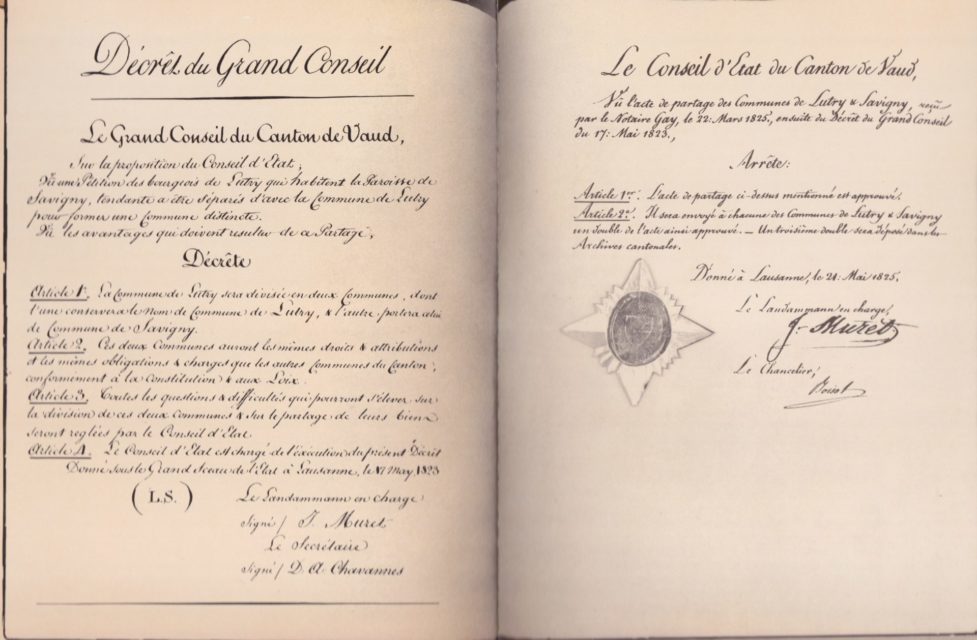 Décrêt du Grand Conseil
Le Grand Conseil du Canton de Vaud,
Sur la proposition du Conseil d'Etat,
Vu une Pétition des bourgeois de Lutry qui habitent la Paroisse de
Savigny, tendante a être séparés d'avec la Commune de Lutry
pour former une commune distincte.
Vu les avantages qui doivent resulter de ce Partage,
Décrête
Article 1r. La Commune de Lutry sera divisée en deux Communes, dont
l'une conservera le Nom de Commune de Lutry, & l'autre portera celui
de Commune de Savigny.
Article 2. Ces deux Communes auront les mêmes droits & attributions
et les mêmes obligations & charges que les autres Communes du Canton,
conformément à la Constitution & aux Loix.
Article 3. Toutes les questions & difficultés qui pourront s'élever sur
la division de ces deux Communes & sur le partage de leurs biens
seront reglées par le Conseil d'Etat.
Article 4. Le Conseil d'Etat est chargé de l'éxécution du présent Décrêt
Donné sous le Grand Sceau de l'Etat à Lausanne, le 17 May 1823
(L.S.)
Le Landammann en charge
signé / J. Muret
Le Secrétaire
signé / D. A. Chavannes
Le Conseil d'Etat du Canton de Vaud,
Vu l'acte de partage des Communes de Lutry & Savigny, reçu
par le Notaire Gay, le 22: Mars 1825, ensuite du Décrêt du Grand Conseil
du 17: Mai 1823,
Arrête:
Article 1er. L'acte de partage ci-dessus mentionné est approuvé.
Article 2e. Il sera envoyé à chacune des Communes de Lutry & Savigny
un double de l'acte ainsi approuvé. — Un troisième double sera déposé dans les
Archives cantonales.
Donné à Lausanne, le 21: Mai 1825.
Le Landammann en charge,
J. Muret
Le Chancelier,
Boisot